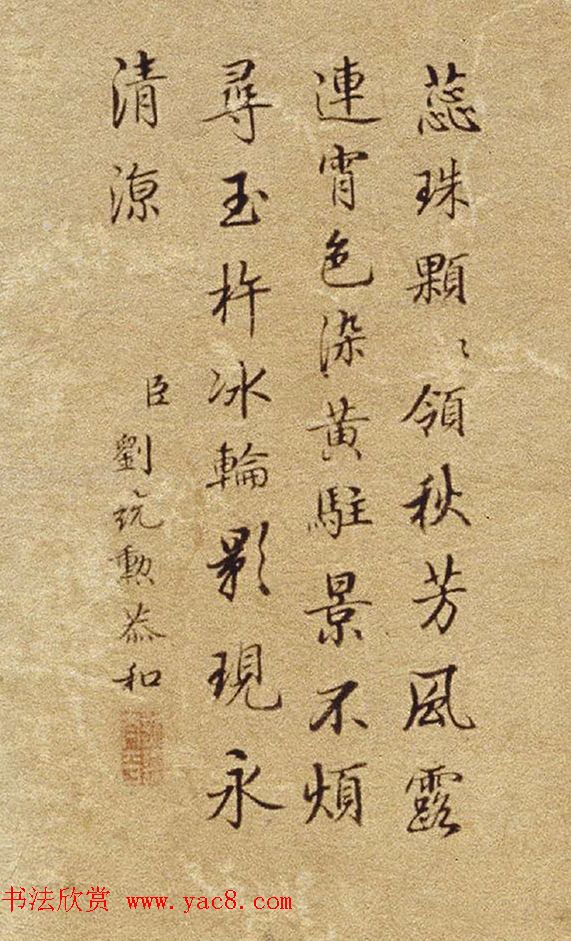 蕊珠顆〻領秋芳風露
連宵色染黄駐景不煩
尋玉杵冰輪影現永
清源
臣劉統勲恭和
书法欣赏 www.yac8.com